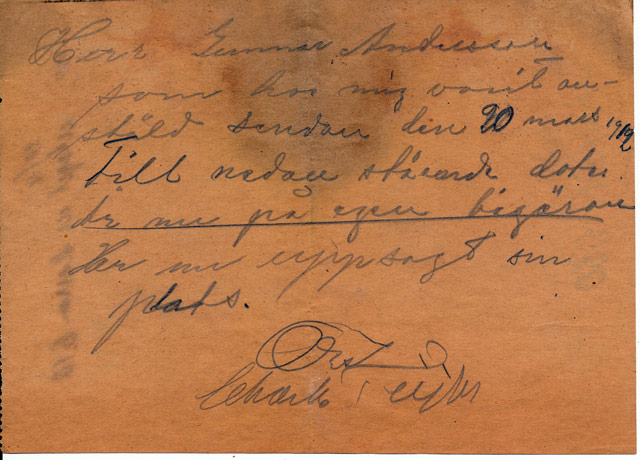 Herr Gunnar Andersson
som hos mig varit an-
ställd sendan den 20 mars 1912
till nedan stående datu
är nu på egen begäran
Har nu uppsagt sin
plats.
Charles